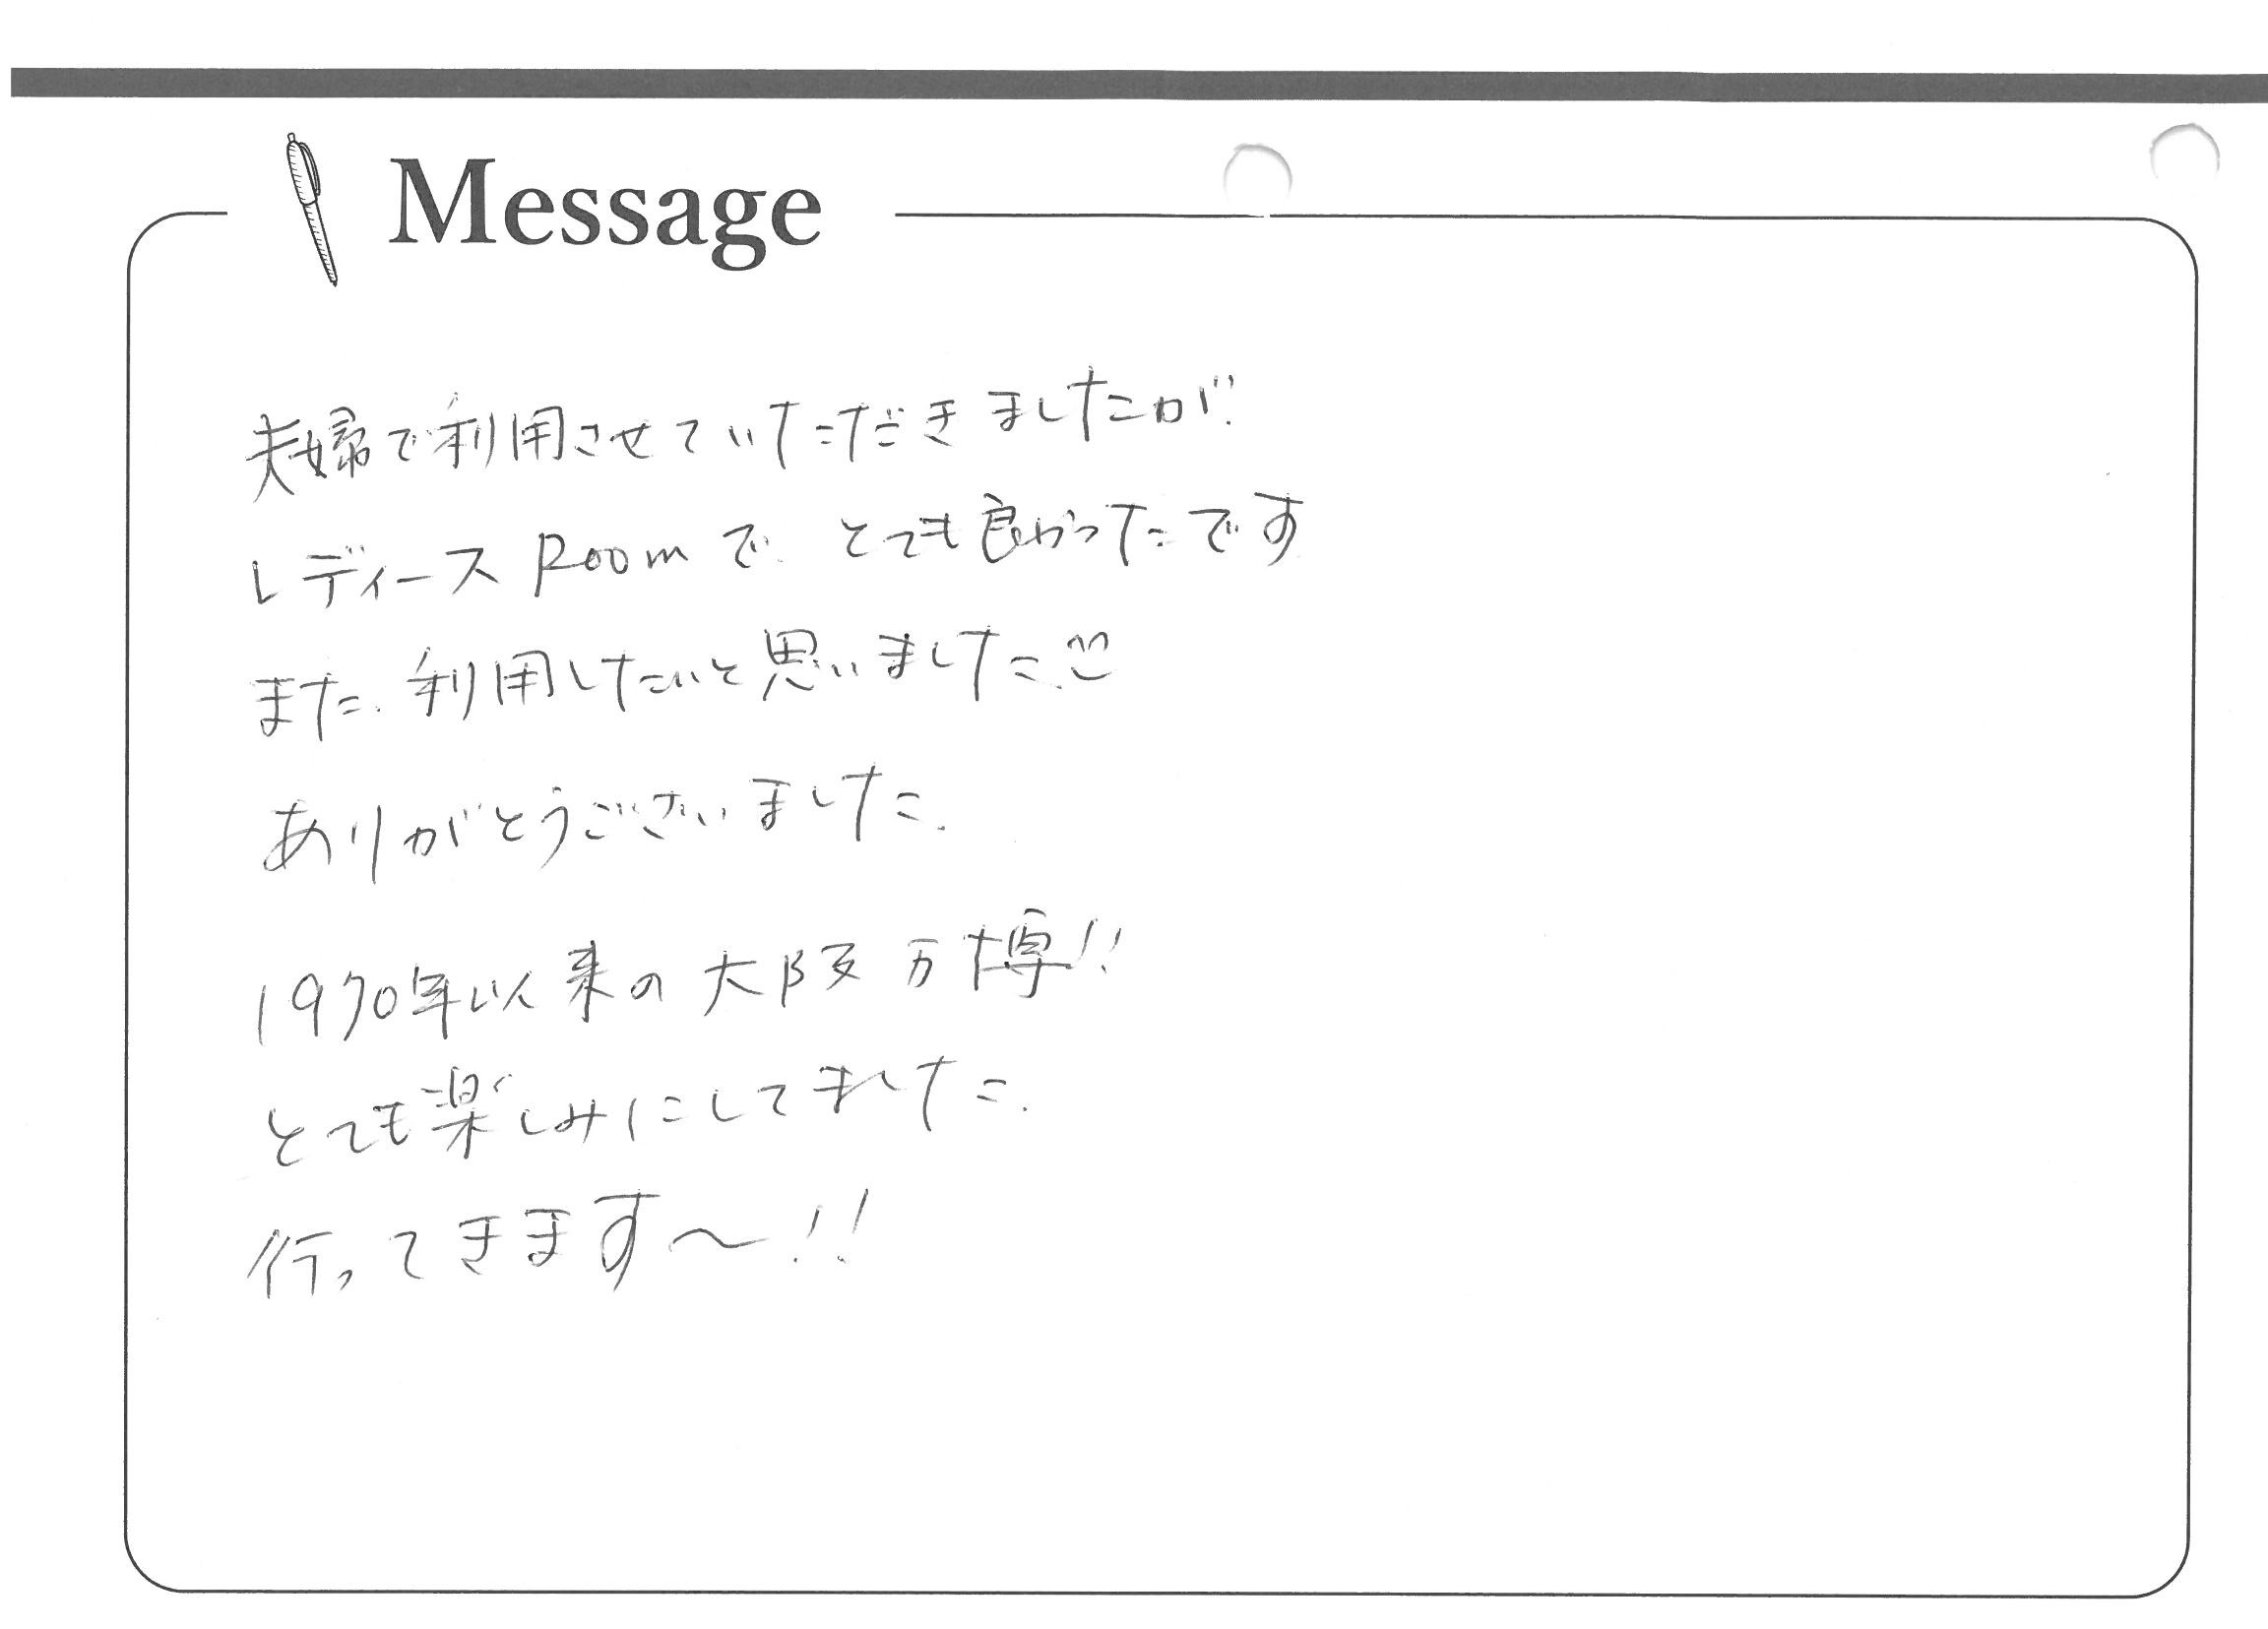 Message
夫婦で利用させていただきましたが、
レディースRoomで、とても良かったです
また、利用したいと思いました。
ありがとうございました。
1970年以来の大阪万博!!
とても楽しみにしてました。
行ってきます〜!!